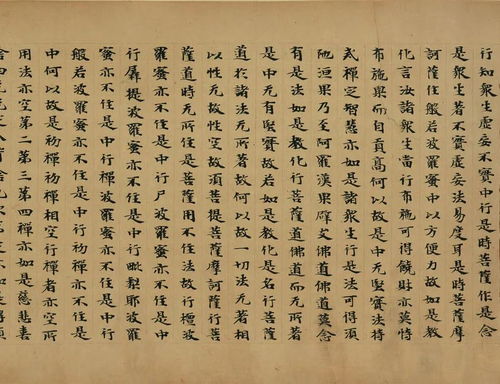 行知衆生虛妄不實中行是時菩薩作是念
是衆生著不實虛妄法易度耳是時菩薩摩
訶薩住般若波羅蜜中以方便力故如是教
化言汝諸衆生當行布施可得饒財亦莫恃
布施果而自貢高何以故是中无堅實法持
戒禪定智慧亦如是諸衆生行是法可得須
陁洹果乃至阿羅漢果辟支佛道佛道莫念
有是法如是教化行菩薩道佛道而无所著
是中无有堅實故若如是教化是名行菩薩
道於諸法无所著故何以故一切法无著相
以性无故性空故須菩提菩薩摩訶薩行菩
薩道時无所住是菩薩用不住法故行檀波
羅蜜亦不住是中行尸波羅蜜亦不住是中
行羼提波羅蜜亦不住是中行毗梨耶波羅
蜜亦不住是中行禪波羅蜜亦不住是中行
般若波羅蜜亦不住是中行初禪亦不住是
中何以故是初禪初禪相空行禪者亦空所
用法亦空第二第三第四禪亦如是慈悲喜